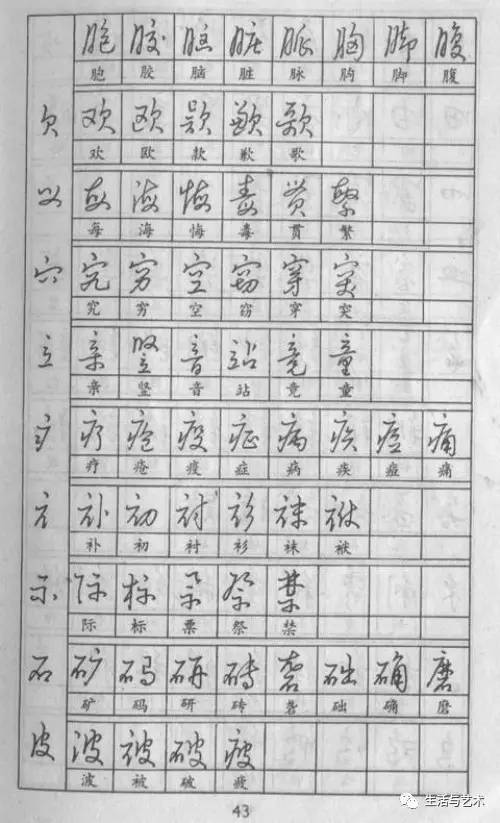 胞 胶 脑 脏 脉 胸 脚 腹
胞 胶 脑 脏 脉 胸 脚 腹
欠 欢 欧 款 歉 歌
欢 欧 款 歉 歌
每 海 悔 毒 贯 繁
每 海 悔 毒 贯 繁
穴 究 穷 空 窃 穿 突
究 穷 空 窃 穿 突
立 亲 竖 音 站 竟 童
亲 竖 音 站 竟 童
疒 疗 疮 疫 症 病 疾 痘 痛
疗 疮 疫 症 病 疾 痘 痛
衤 补 初 衬 衫 袜 被
补 初 衬 衫 袜 被
示 际 标 票 祭 禁
际 标 票 祭 禁
石 矿 码 研 砖 砻 础 确 磨
矿 码 研 砖 砻 础 确 磨
皮 波 被 破 疲
波 被 破 疲
43
生活与艺术